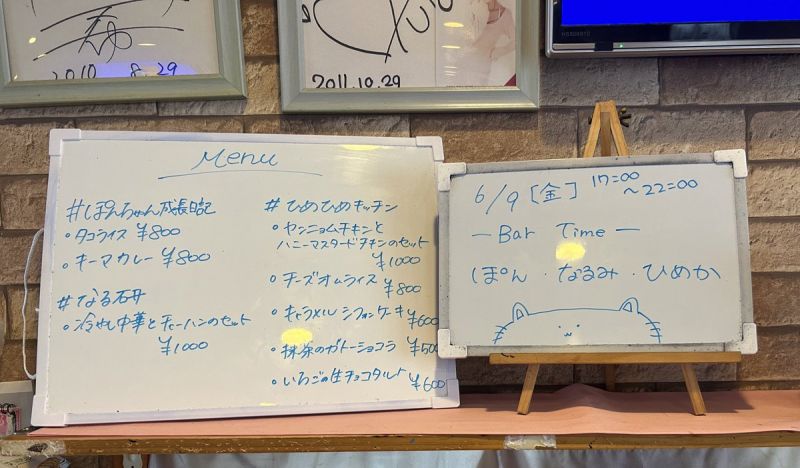 2010 8.29
2011.10.29
Menu
#ぽんちゃん成長日記
・タコライス ¥800
・キーマカレー ¥800
#なる研
・冷やし中華とチャーハンのセット
¥1000
#ひめひめキッチン
・ヤンニョムチキンと
ハニーマスタードチキンのセット
¥1000
・チーズオムライス
¥800
・キャラメルシフォンケーキ ¥600
・抹茶のガトーショコラ ¥500
・いちごの生チョコタルト ¥600
6/9 [金] 17:00
~22:00
— Bar Time —
ぽん・なるみ・ひめか